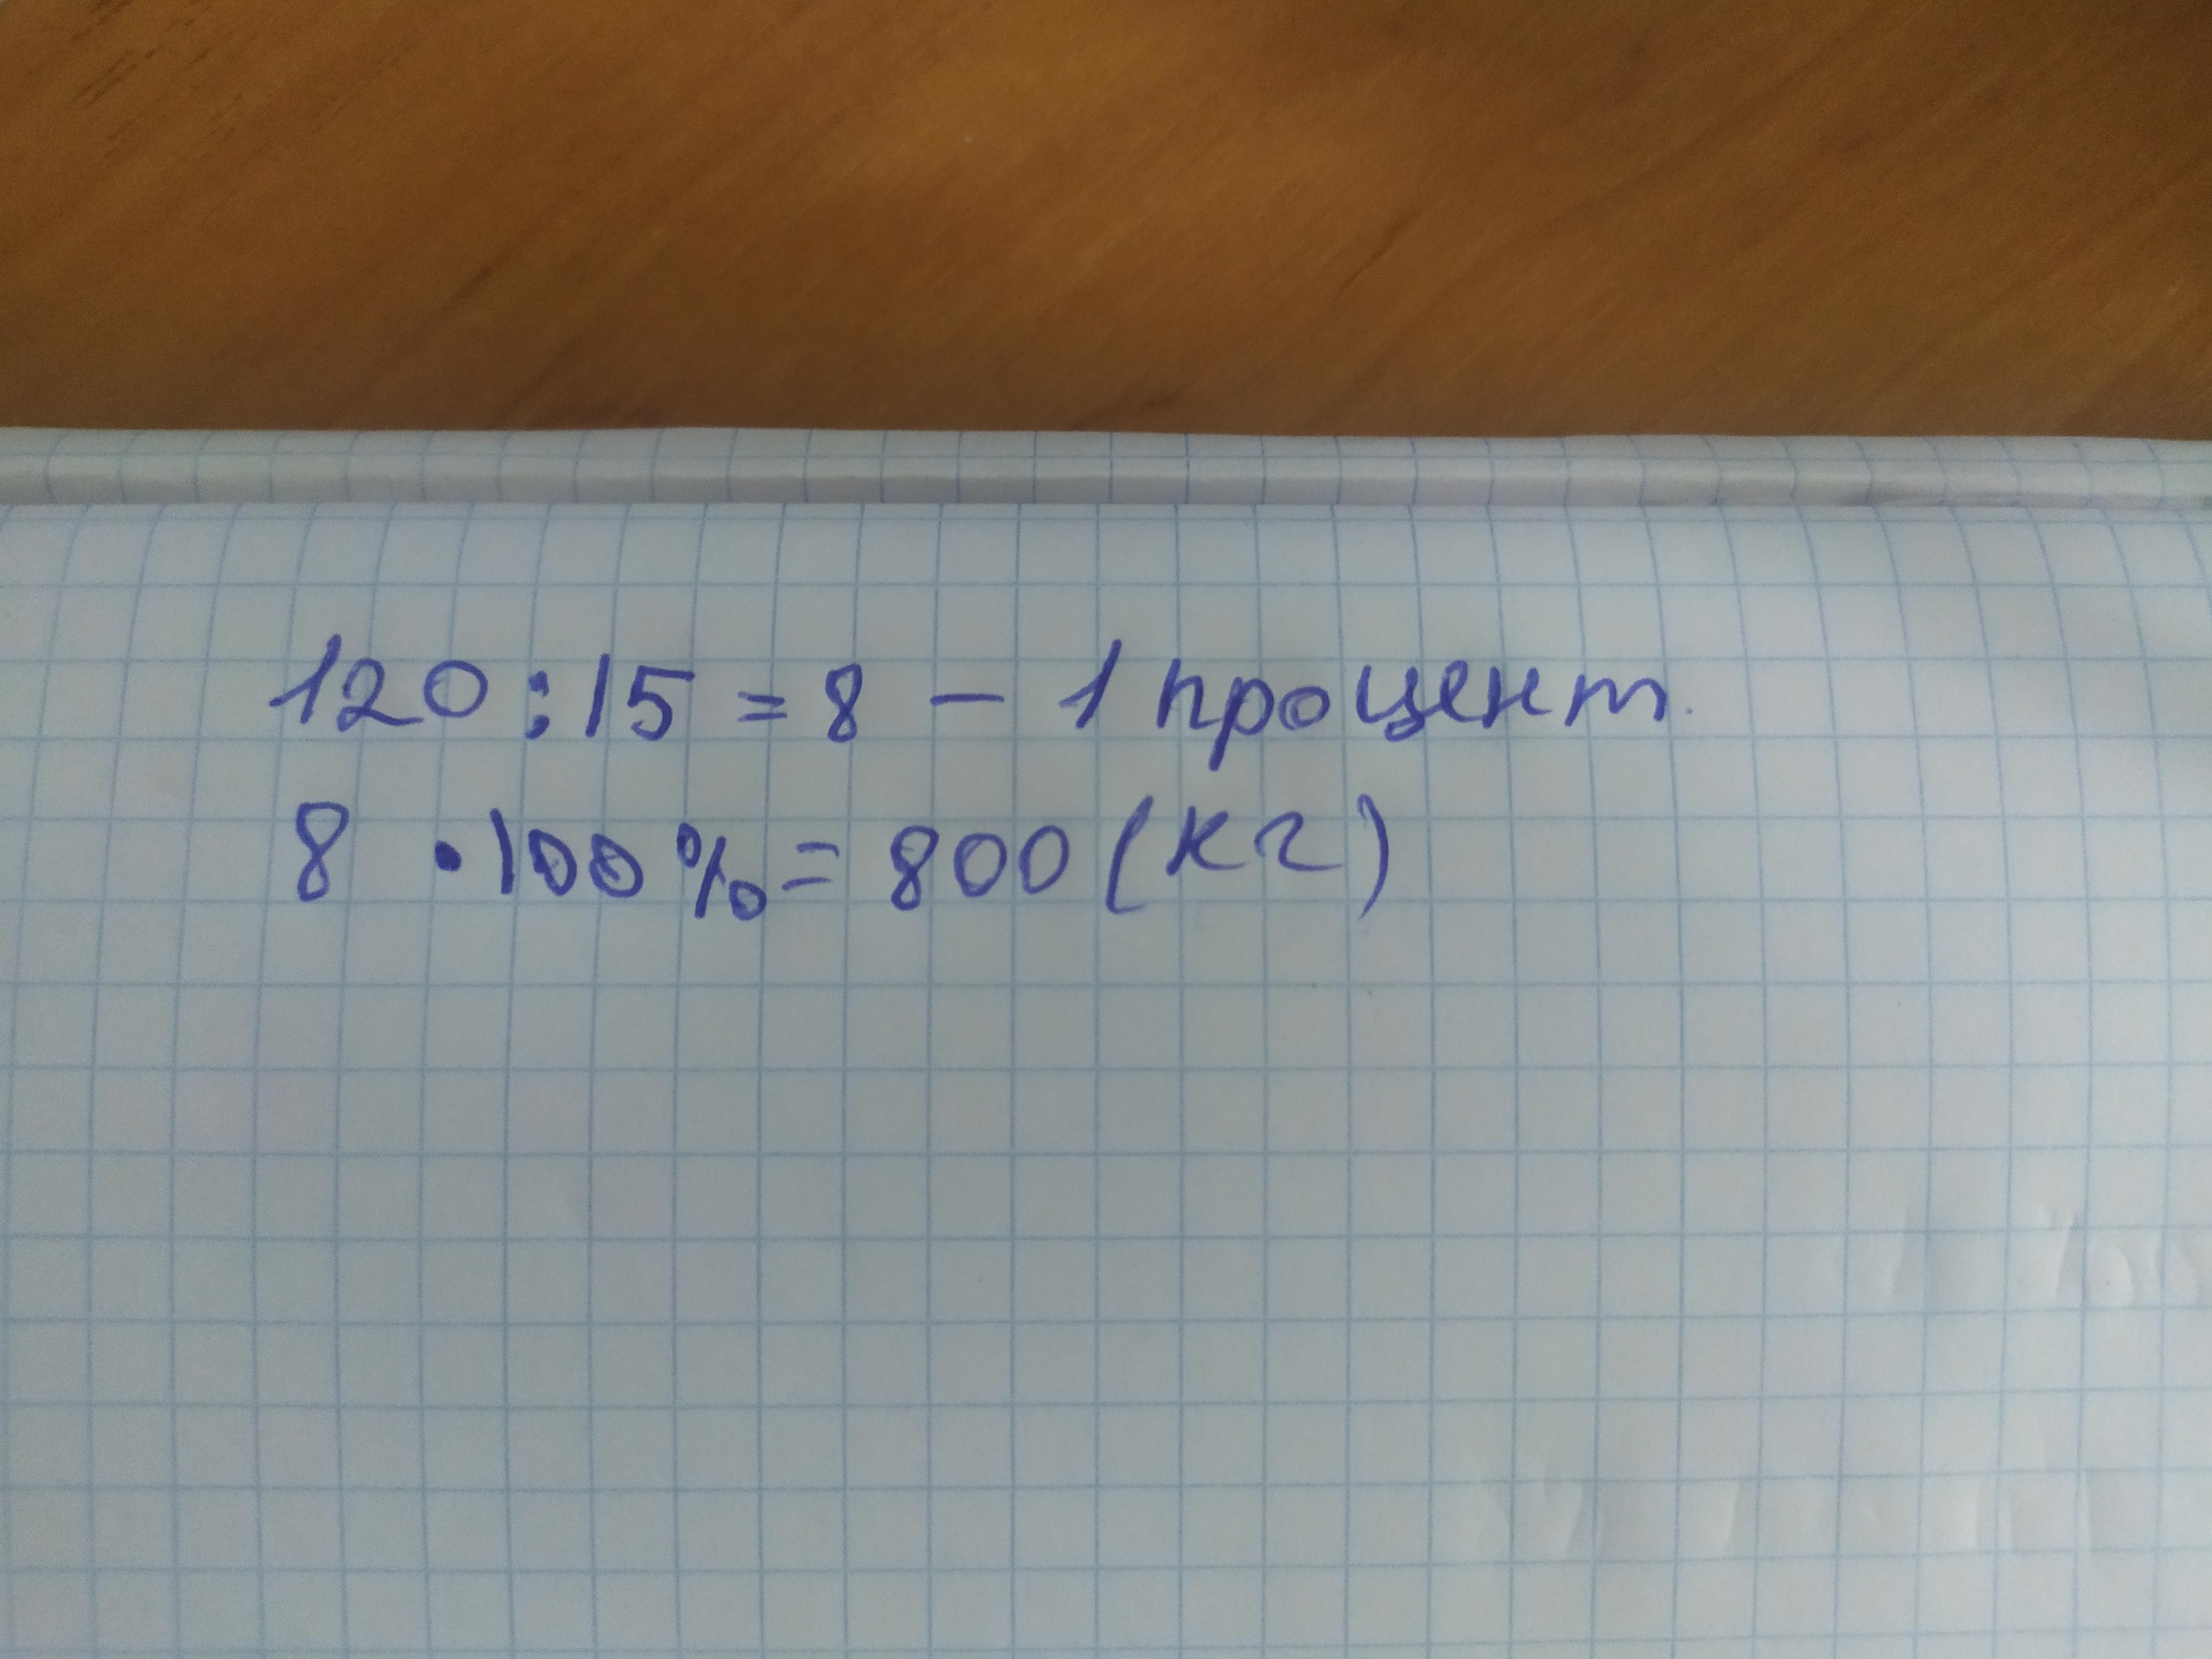 120 : 15 = 8 – 1 процент.
8 · 100 % = 800 (кг)